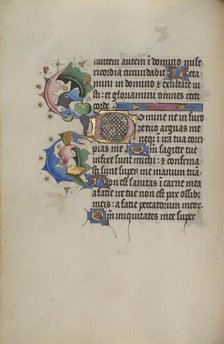 rantem autem ī domino mise
ricordia circundabit Leta
mini in domino et exultate iu
sti: et gloriamini omnes recti
corde
Domine ne in furo
re tuo arguas me
neqȝ in ira tua corri
pias me Qm̄ sagitte tue
infixe sunt michi: et confirma
sti super me manum tuā
Non est sanitas ī carne mea
a facie ire tue non est pax ossib3
meis: a facie peccatorum meor
Qm̄ iniquitates mee super